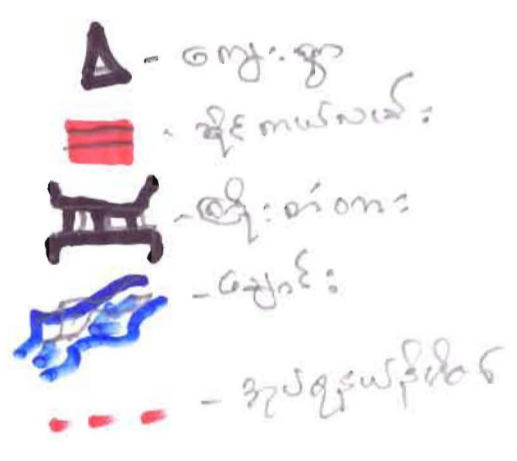 ကျေးရွာ
ဆိုင်ကယ်လမ်း
ကြိုးတံတား
ချောင်း
အုပ်ရနယ်နိမိတ်